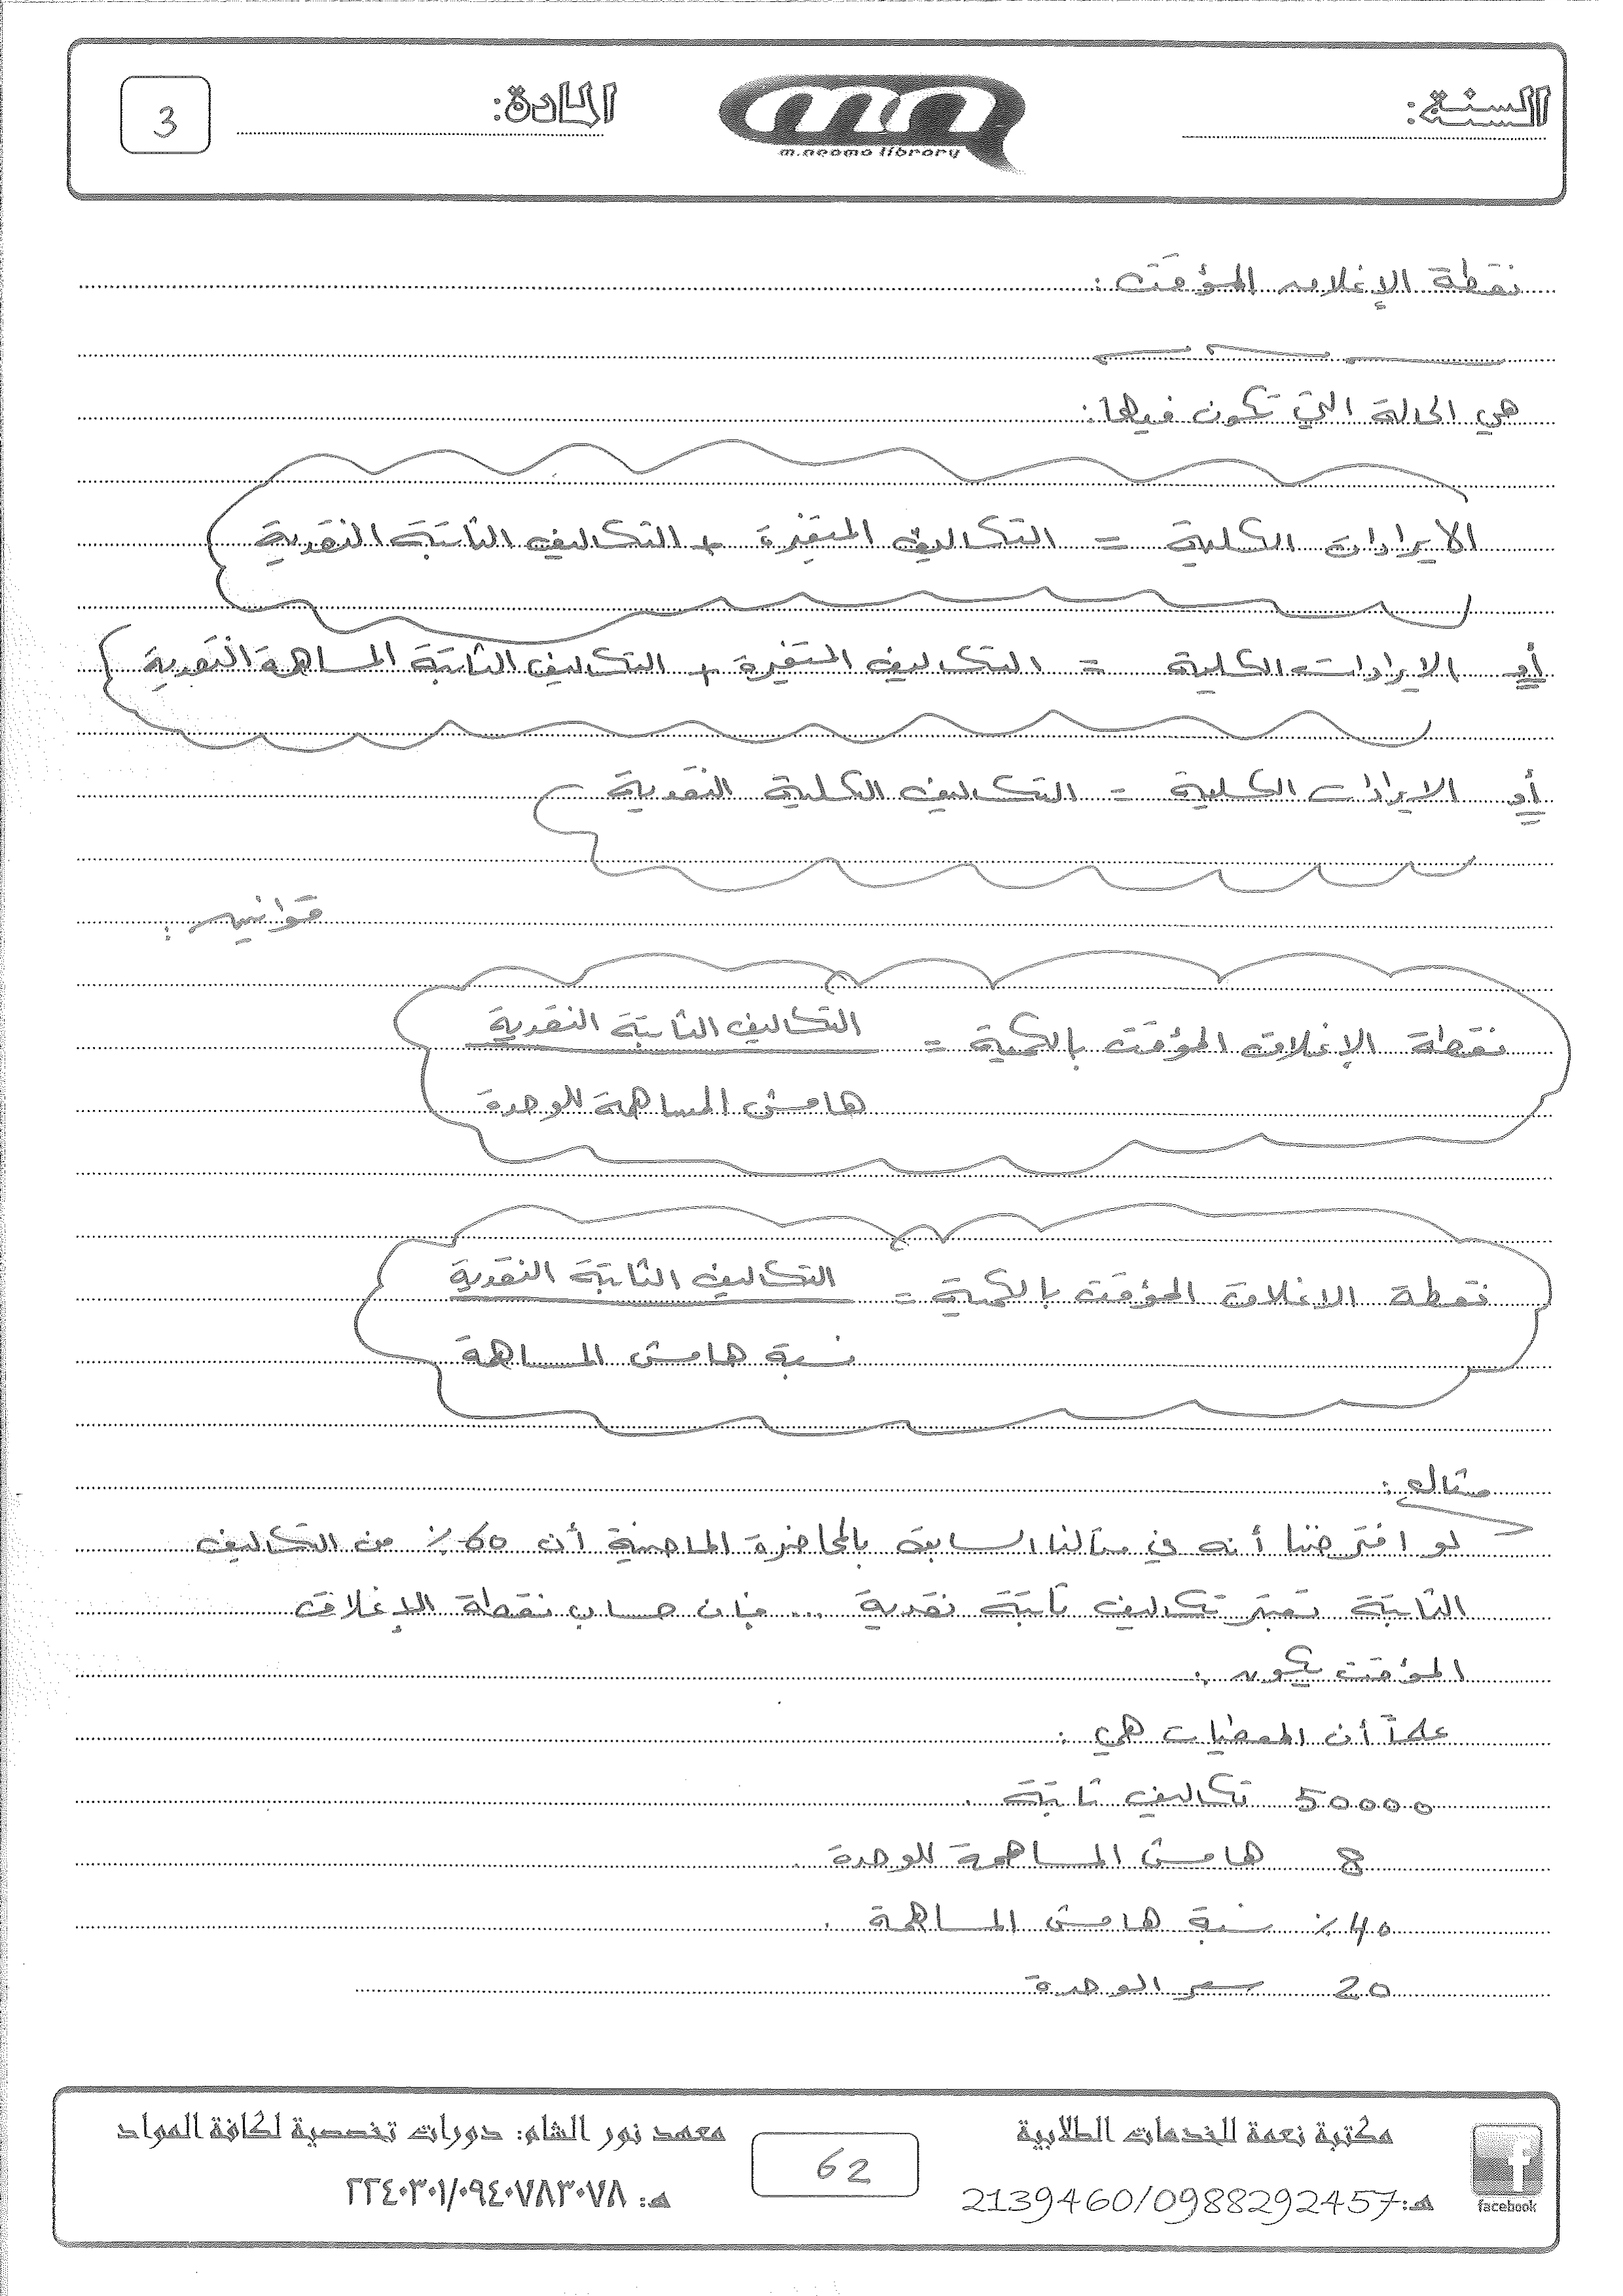 السنة:
m.neoma library
المادة:
3
نقطة الإغلاق المؤقت :
هي الحالة التي تكون فيها:
الايرادات الكلية = التكاليف المتغيرة + التكاليف الثابتة النقدية
أو الايرادات الكلية = التكاليف المتغيرة + التكاليف الثابتة المساهمة النقدية
أو الايرادات الكلية = التكاليف الكلية النقدية
قوانين :
نقطة الإغلاق المؤقت بالكمية = التكاليف الثابتة النقدية
هامش المساهمة للوحدة
نقطة الاغلاق المؤقت بالكمية = التكاليف الثابتة النقدية
نسبة هامش المساهمة
مثال :
لو افترضنا أنه في مثالنا السابق بالمحاضرة الماضية أن 60٪ من التكاليف
الثابتة تعتبر تكاليف ثابتة نقدية ... فإن حساب نقطة الإغلاق
المؤقت يكون :
علماً أن المعطيات هي :
50000 تكاليف ثابتة .
8 هامش المساهمة للوحدة .
40٪ نسبة هامش المساهمة .
20 سعر الوحدة
مكتبة نعمة للخدمات الطلابية
هـ:2139460/0988292457
facebook
62
معهد نور الشام: دورات تخصصية لكافة المواد
هـ: ٢٢٤٠٣٠١/٠٩٤٠٧٨٣٠٧٨